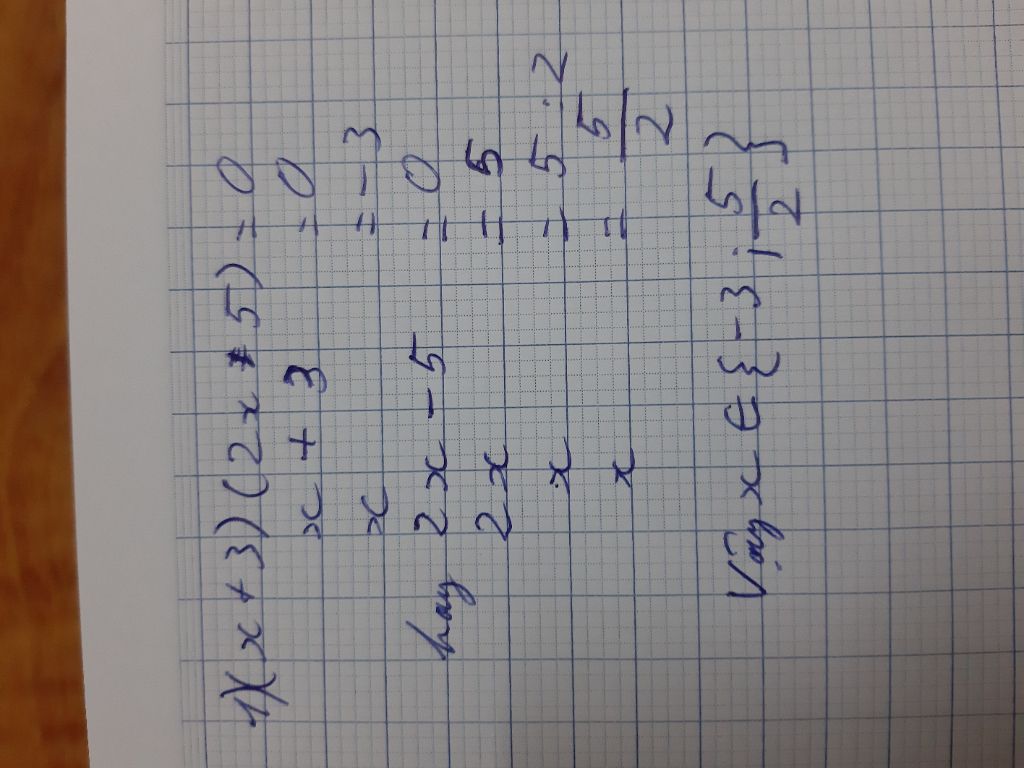 1) (x + 3) (2x - 5) = 0
x + 3 = 0
x = -3
hay 2x - 5 = 0
2x = 5
x = 5 : 2
x = 5/2
Vậy x ∈ { -3 ; 5/2 }